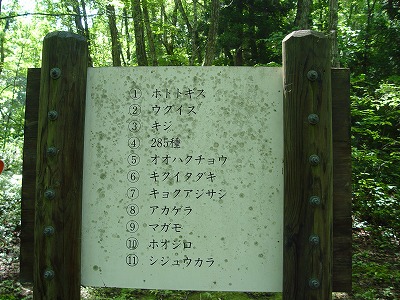 ① ホトトギス
② ウグイス
③ キジ
④ 285種
⑤ オオハクチョウ
⑥ キクイタダキ
⑦ キョクアジサシ
⑧ アカゲラ
⑨ マガモ
⑩ ホオジロ
⑪ シジュウカラ